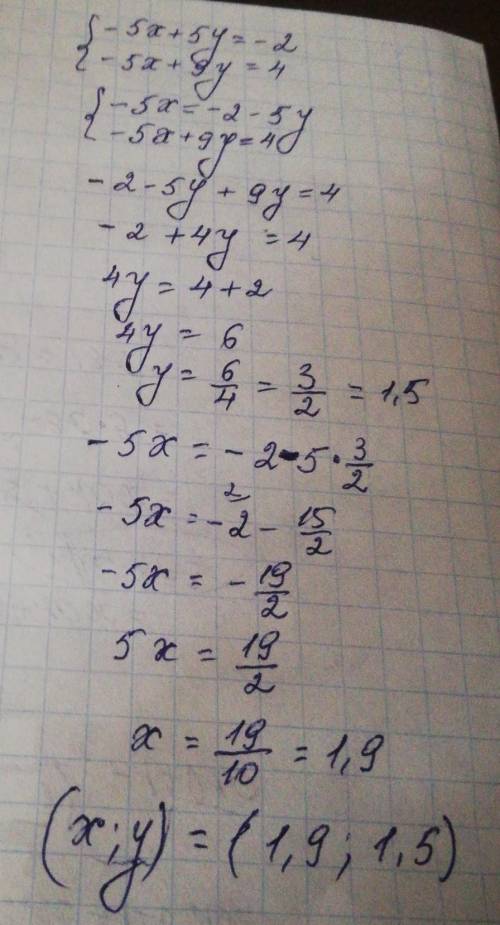 {-5x+5y=-2
{-5x+9y=4
{-5x=-2-5y
{-5x+9y=4
-2-5y+9y=4
-2+4y=4
4y=4+2
4y=6
y=6/4=3/2=1,5
-5x=-2-5·3/2
-5x=-2-15/2
-5x=-19/2
5x=19/2
x=19/10=1,9
(x;y)=(1,9;1,5)